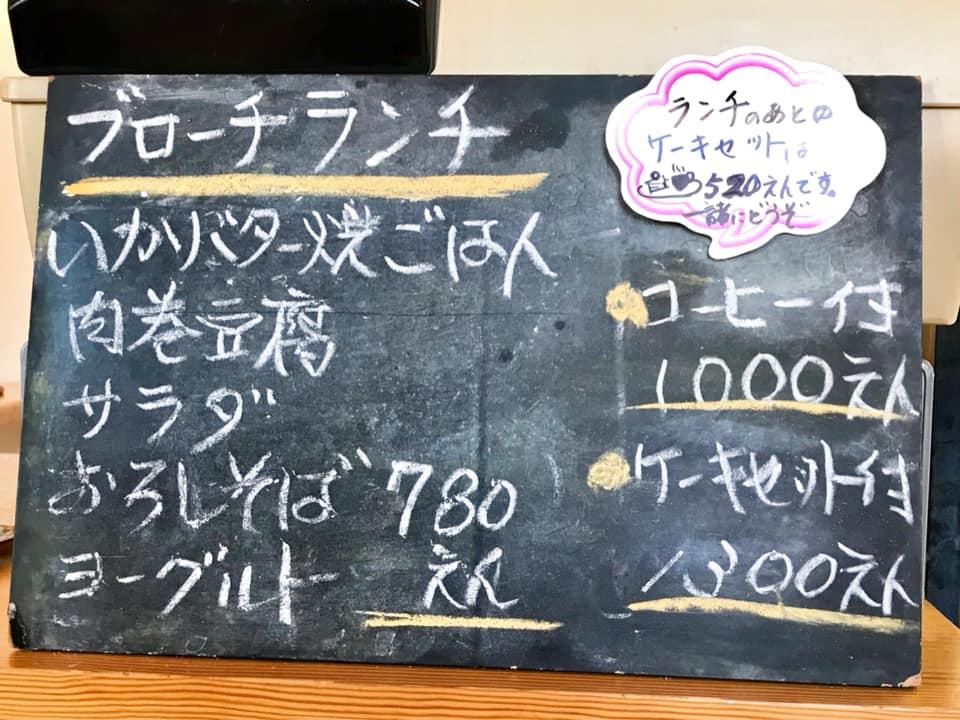 ブローチランチ
いかバター焼ごはん
肉巻豆腐
サラダ
おろしそば 780
ヨーグルト えん
ランチのあとの
ケーキセットは
520えんです。
一緒にどうぞ
コーヒー付
1000えん
ケーキセット付
1300えん